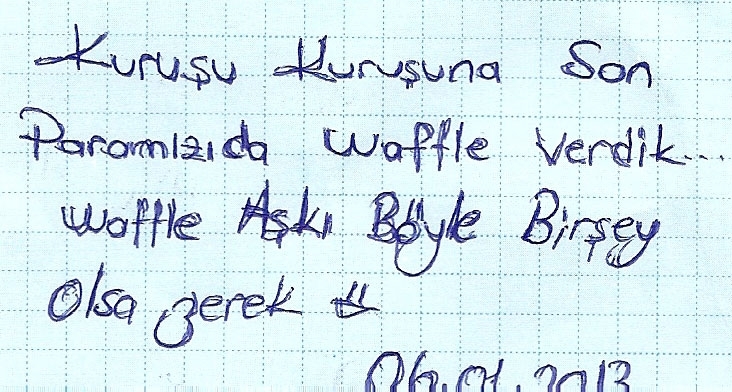 Kuruşu Kuruşuna Son
Paramızıda waffle verdik...
waffle Aşkı Böyle Birşey
Olsa gerek
06.01.2013